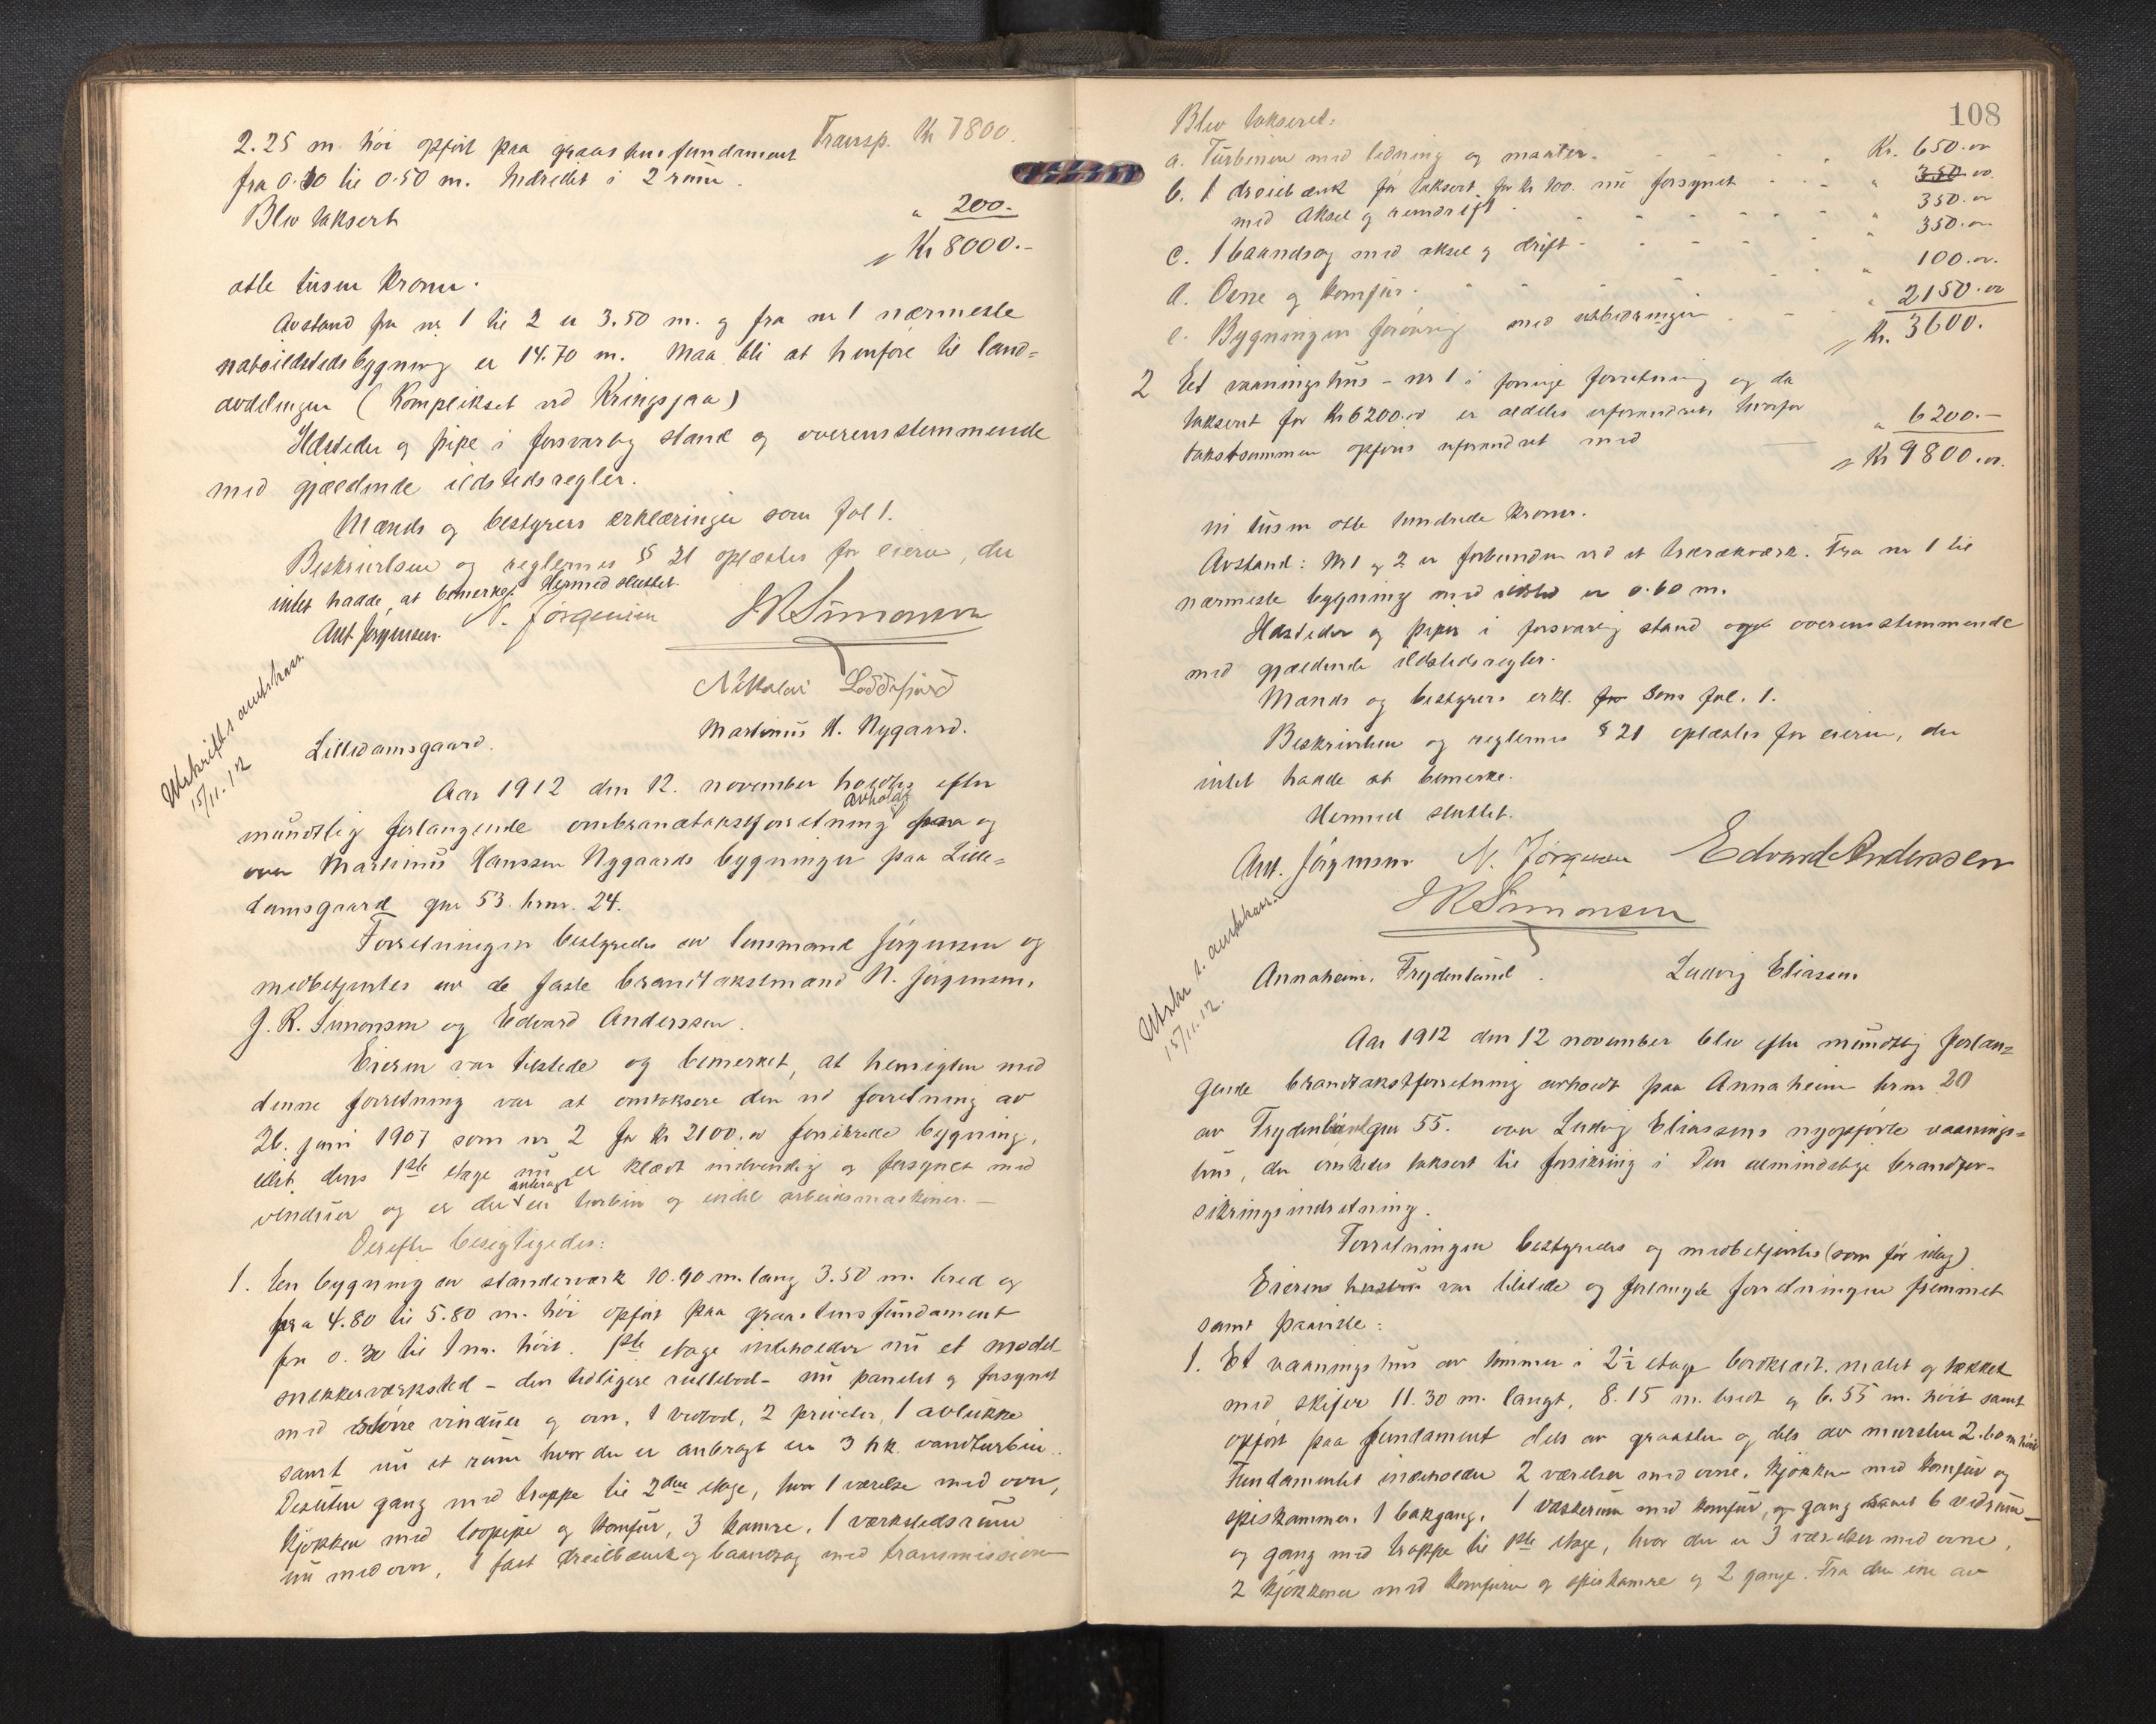 2.25 m. høi opført paa graastensfundament Transp. Kr 7800.
fra 0.30 til 0.50 m. Indredet i 2 rum.
Blev taksert " 200.-
Kr 8000.-
otte tusen kroner.
Avstand fra nr 1 til 2 er 3.50 m. og fra nr 1 nærmeste
naboildstedsbygning er 14.70 m. Maa bli at henføre til land=
avdelingen (Komplekset ved Kringsjaa)
Ildsteder og pipe i forsvarlig stand og overensstemmende
med gjældende ildstedsregler.
Mænds og bestyrers erklæringer som fol 1.
Beskrivelsen og reglernes § 21 oplæstes for eieren, der
intet hadde at bemerke. Hermed sluttet.
Ant Jørgensen. N. Jørgensen J R Simonsen
Nikolai Loddefjord
Martinus H. Nygaard.
Utskrift s amtskass.
15/11.12
Lilledamsgaard.
Aar 1912 den 12. november holdtes efter
avholdt
mundtlig forlangende ombrandtakstforretning paa og
over Martinus Hanssen Nygaards bygninger paa Lille=
damsgaard gnr 53. brnr. 24.
Forretningen bestyredes av lensmand Jørgensen og
medbetjentes av de faste brandtakstmænd N. Jørgensen,
J. R. Simonsen og Edvard Anderssen.
Eieren var tilstede og bemerket, at hensigten med
denne forretning var at omtaksere den ved forretning av
26. juni 1907 som nr 2 for kr 2100.00 forsikrede bygning,
idet dens 1ste etage nu er klædt indvendig og forsynet med
anbragt
vinduer og er der en turbin og endel arbeidsmaskiner. -
Derefter besigtigedes:
1. En bygning av standerverk 10.40 m. lang 3.50 m. bred og
fra 4.80 til 5.80 m. høi opført paa graastensfundament
fra 0.30 til 1 m. høit. 1ste etage indeholder nu et model
snekkerværksted - den tidligere rullebod - nu panelet og forsynet
med større vinduer og ovn, 1 vedbod, 2 priveter, 1 avlukke
samt nu et rum hvor der er anbragt en 3 hk. vandturbin.
Desuten gang med trappe til 2den etage, hvor 1 værelse med ovn,
kjøkken med loopipe og komfur, 3 kamre, 1 værkstedsrum
nu med ovn, 1 fast dreiebænk og baandsag med transmission
108
Blev takseret:
a. Turbinen med ledning og maater. - - - Kr. 650.00
b. 1 dreiebænk før taksert for kr 100. nu forsynet - - - " 350 00
med aksel og remdrift - - - 350.00
c. 1 baandsag med aksel og drift - - - " 350.00
d. Ovne og komfur. - - - " 100.00.
e. Bygningen forøvrig med utbedringen - - " 2150.00
Kr. 3600.
2 Et vaaningshus - nr 1 i forrige forretning og da
taksert for Kr 6200.00 er aldeles uforandret, hvorfor
takstsummen opføres uforandret med " 6200.-
Kr 9800.00.
ni tusen otte hundrede kroner.
Avstand: Nr 1 og 2 er forbunden ved et trærækverk. Fra nr 1 til
nærmeste bygning med ildsted er 0.60 m.
Ildsteder og piper i forsvarlig stand og overensstemmende
med gjældende ildstedsregler.
Mænds og bestyrers erkl. for som fol. 1.
Beskrivelsen og reglernes § 21 oplæstes for eieren, der
intet hadde at bemerke.
Hermed sluttet.
Ant. Jørgensen N. Jørgensen Edvard Anderssen
J R Simonsen
Utskr t. amtskass.
15/11.12.
Annaheim, Frydenlund. Ludvig Eliassen
Aar 1912 den 12 november blev efter mundtlig forlan=
gende brandtakstforretning avholdt paa Annaheim brnr 20
av Frydenlund gnr 55. over Ludvig Eliassens nyopførte vaanings=
hus, der ønskedes taksert til forsikring i Den almindelige brandfor-
sikringsindretning.
Forretningen bestyredes og medbetjentes (som før idag)
Eierens hustru var tilstede og forlangte forretningen fremmet
samt paaviste:
1. Et vaaningshus av tømmer i 2½ etage bordklædt, malet og tækket
med skifer 11.30 m. langt, 8.15 m. bredt og 6.55 m. høit samt
opført paa fundament dels av graasten og dels av mursten 2.60 m høit
Fundamentet indeholder 2 værelser med ovne, kjøkken med komfur og
spiskammer, 1 bakgang, 1 vaskerum med komfur, og gang samt 6 vedrum
og gang med trappe til 1ste etage, hvor der er 3 værelser med ovne,
2 kjøkkener med komfurer og spiskamre og 2 gange. Fra den ene av